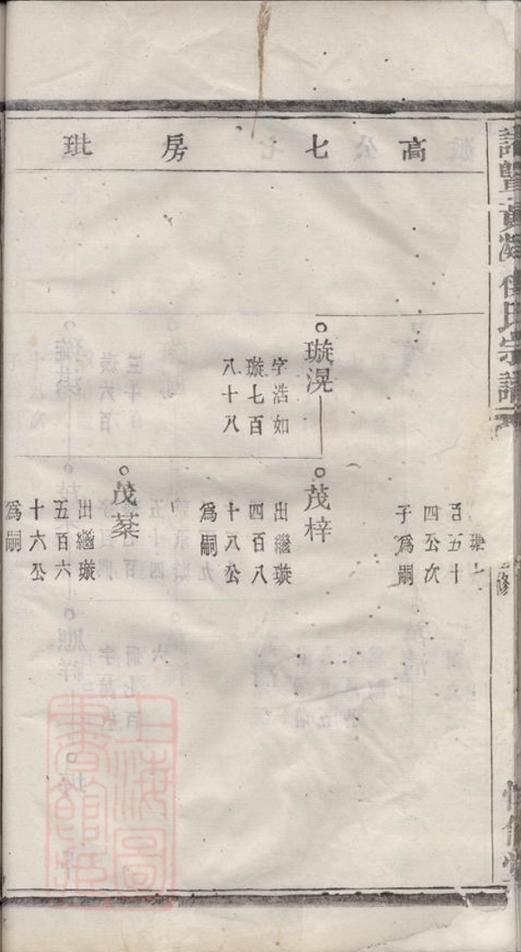 高七房玭
氏宗譜
百五十
四公次
子爲嗣
璇滉
字浩如
璇七百
八十八
茂梓
出繼璇
四百八
十八公
爲嗣
茂蓁
出繼璇
五百六
十六公
爲嗣
上海圖
書館藏